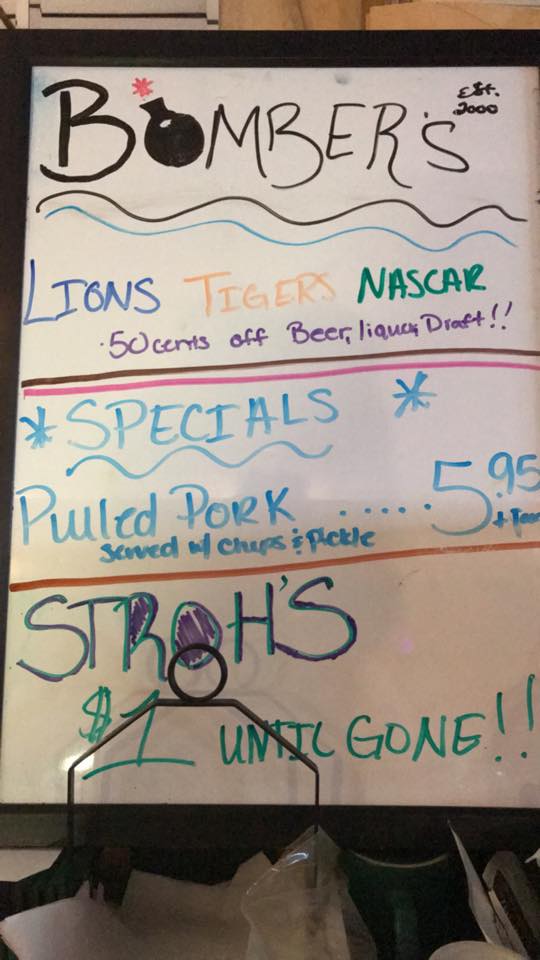 BOMBER'S
Est. 2000
LIONS TIGERS NASCAR
.50 cents off Beer, liquor, Draft!!
*SPECIALS *
Pulled PORK ..... 5.95
Served w/ chips & Pickle
STROH'S
$1 UNTIL GONE!!